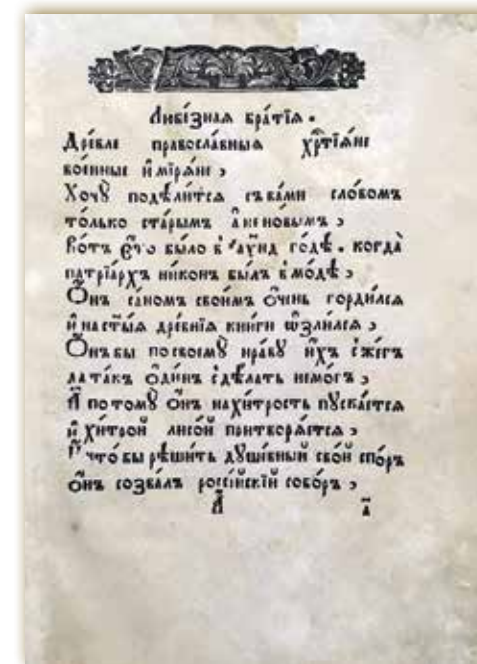 Любе́зная бра́тїя .
Дре́вле правосла́вныя хр҇тїѧ́не
вое́нные и҆ мїрѧ́не ,
Хочꙋ̀ подѣли́тсѧ съ ва́ми сло́вомъ
то́лько ста́рымъ а҆ не но́вымъ ,
Во́тъ є҆́то бы́ло в҆ ҂аꙋ҃нд го́дѣ . когда̀
патрїа́рхъ ни́конъ бы́лъ в҆ мо́дѣ ,
Ѻ҆́нъ са́номъ свои́мъ ѻ҆́чень горди́лсѧ
и҆ на ст҃ы́ѧ дре́внїѧ кни́ги ѡ҆зли́лсѧ ,
Ѻ҆́нъ бы по своемꙋ̀ нра́вꙋ и҆́хъ сже́гъ
да та́къ ѻ҆ди́нъ сдѣ́лать не мо́гъ ,
И҆ по томꙋ̀ ѻ҆́нъ на хи́трость пꙋска́етсѧ
и҆ хи́трой лисо́й притворѧ́етсѧ ,
И҆ что бы рѣши́ть дꙋше́вный сво́й спо́ръ
ѻ҆́нъ созва́лъ россі́йскїй собо́ръ ,